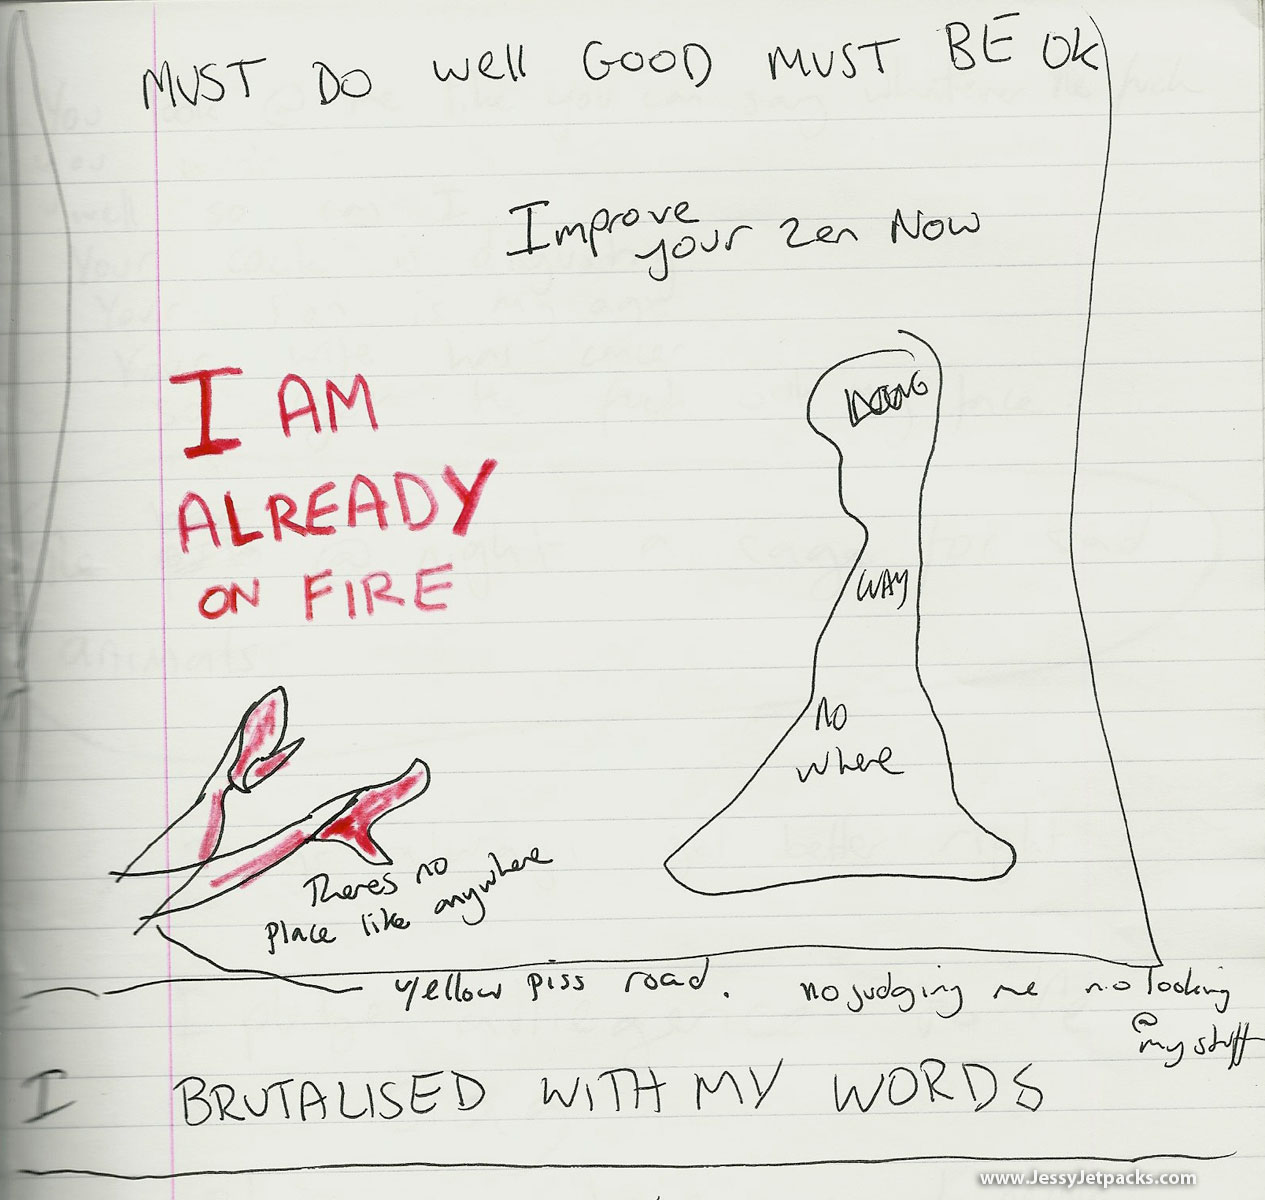 MUST DO well GOOD MUST BE OK
Improve
your zen Now
I AM
ALREADY
ON FIRE
WAY
NO
where
Theres no
place like anywhere
yellow piss road. no judging me no looking
@
my stuff
I BRUTALISED WITH MY WORDS
www.JessyJetpacks.com